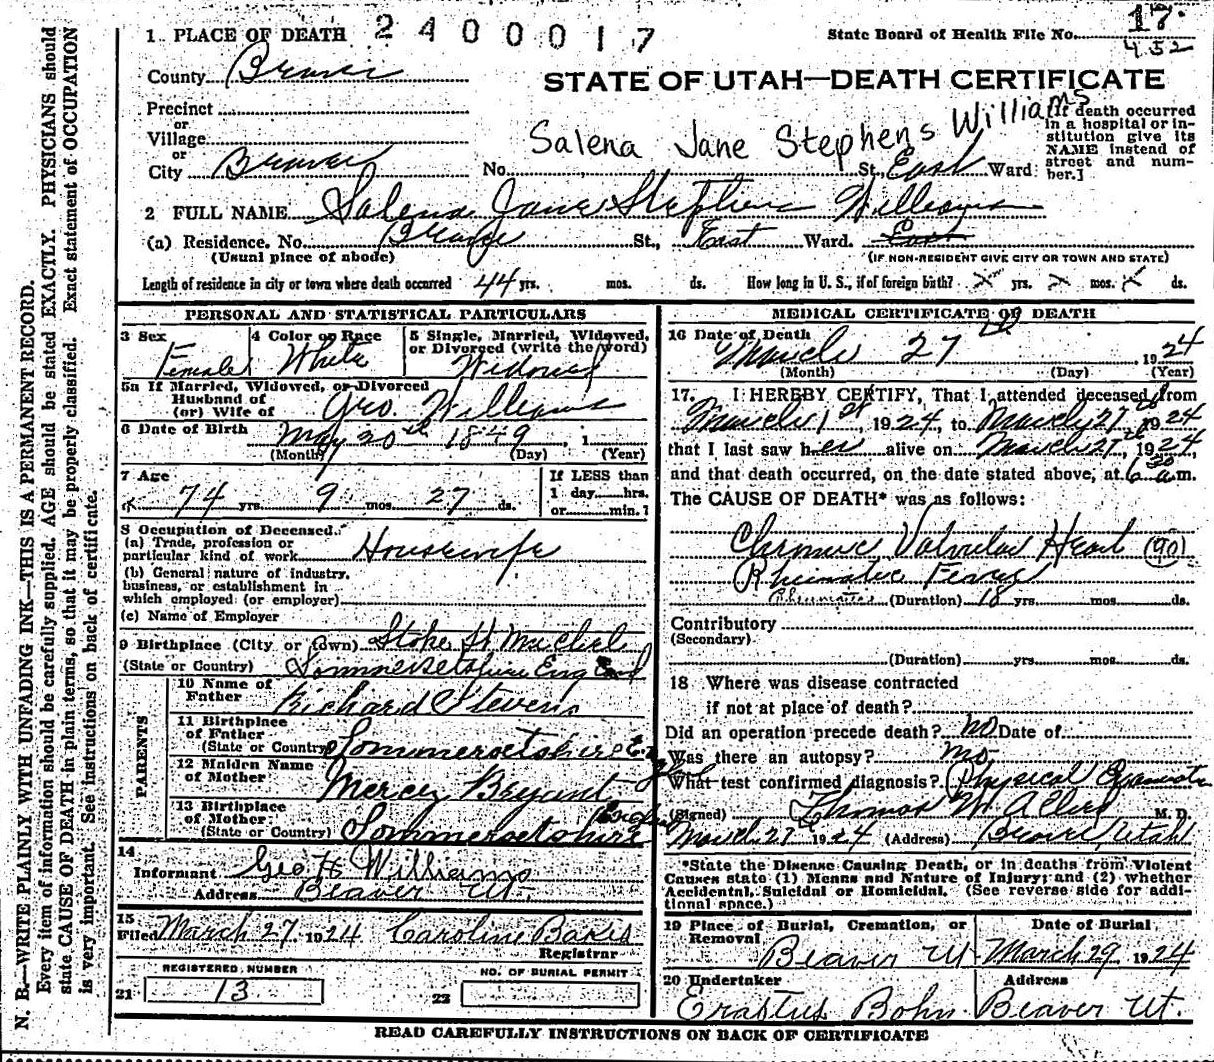 N. B.—WRITE PLAINLY WITH UNFADING INK—THIS IS A PERMANENT RECORD.
Every item of information should be carefully supplied. AGE should be stated EXACTLY. PHYSICIANS should
state CAUSE OF DEATH in plain terms, so that it may be properly classified. Exact statement of OCCUPATION
is very important. See instructions on back of certificate.
2400017
17.
452
1 PLACE OF DEATH
State Board of Health File No.
County Beaver
STATE OF UTAH—DEATH CERTIFICATE
Precinct
or
Village
or
City Beaver
Salena Jane Stephens Williams
No. St., East Ward
[If death occurred
in a hospital or in-
stitution give its
NAME instead of
street and num-
ber.]
2 FULL NAME Salena Jane Stephens Williams
(a) Residence. No. Beaver St., East Ward. East
(Usual place of abode) (IF NON-RESIDENT GIVE CITY OR TOWN AND STATE)
Length of residence in city or town where death occurred 44 yrs. mos. ds. How long in U. S., if of foreign birth? x yrs. x mos. x ds.
PERSONAL AND STATISTICAL PARTICULARS
3 Sex
Female
4 Color or Race
White
5 Single, Married, Widowed,
or Divorced (write the word)
Widowed
5a If Married, Widowed, or Divorced
Husband of
(or) Wife of Geo. Williams
6 Date of Birth May 20th 1849, 1
(Month) (Day) (Year)
7 Age
74 yrs. 9 mos. 27 ds.
If LESS than
1 day hrs.
or min.?
8 Occupation of Deceased.
(a) Trade, profession or
particular kind of work Housewife
(b) General nature of industry,
business, or establishment in
which employed (or employer)
(c) Name of Employer
9 Birthplace (City or town) Stoke St Michel
(State or Country) Sommersetshire England
PARENTS
10 Name of
Father Richard Stevens
11 Birthplace
of Father
(State or Country) Sommersetshire Eng
12 Maiden Name
of Mother Mercy Bryant
13 Birthplace
of Mother
(State or Country) Sommersetshire England
14
Informant Geo H Williams
Address Beaver Ut.
15
Filed March 27, 1924 Caroline
Registrar
REGISTERED NUMBER
21 13
NO. OF BURIAL PERMIT
22
MEDICAL CERTIFICATE OF DEATH
16 Date of Death
March 27, 1924
(Month) (Day) (Year)
17. I HEREBY CERTIFY, That I attended deceased from
March 1st, 1924, to March 27th 1924
that I last saw her alive on March 27th, 1924,
and that death occurred, on the date stated above, at 6 30 a.m.
The CAUSE OF DEATH* was as follows:
Chronic Valvular Heart (90)
Rheumatic Fever
(Duration) 18 yrs. mos. ds.
Contributory
(Secondary)
(Duration) yrs. mos. ds.
18 Where was disease contracted
if not at place of death?
Did an operation precede death? No Date of
Was there an autopsy? no
What test confirmed diagnosis? Physical
(Signed) Thomas M. M. D.
March 27 1924 (Address) Beaver, Utah
*State the Disease Causing Death, or in deaths from Violent
Causes state (1) Means and Nature of Injury; and (2) whether
Accidental, Suicidal or Homicidal. (See reverse side for addi-
tional space.)
19 Place of Burial, Cremation, or
Removal
Beaver Ut
Date of Burial
March 29, 1924
20 Undertaker
Erastus Bohn
Address
Beaver Ut.
READ CAREFULLY INSTRUCTIONS ON BACK OF CERTIFICATE